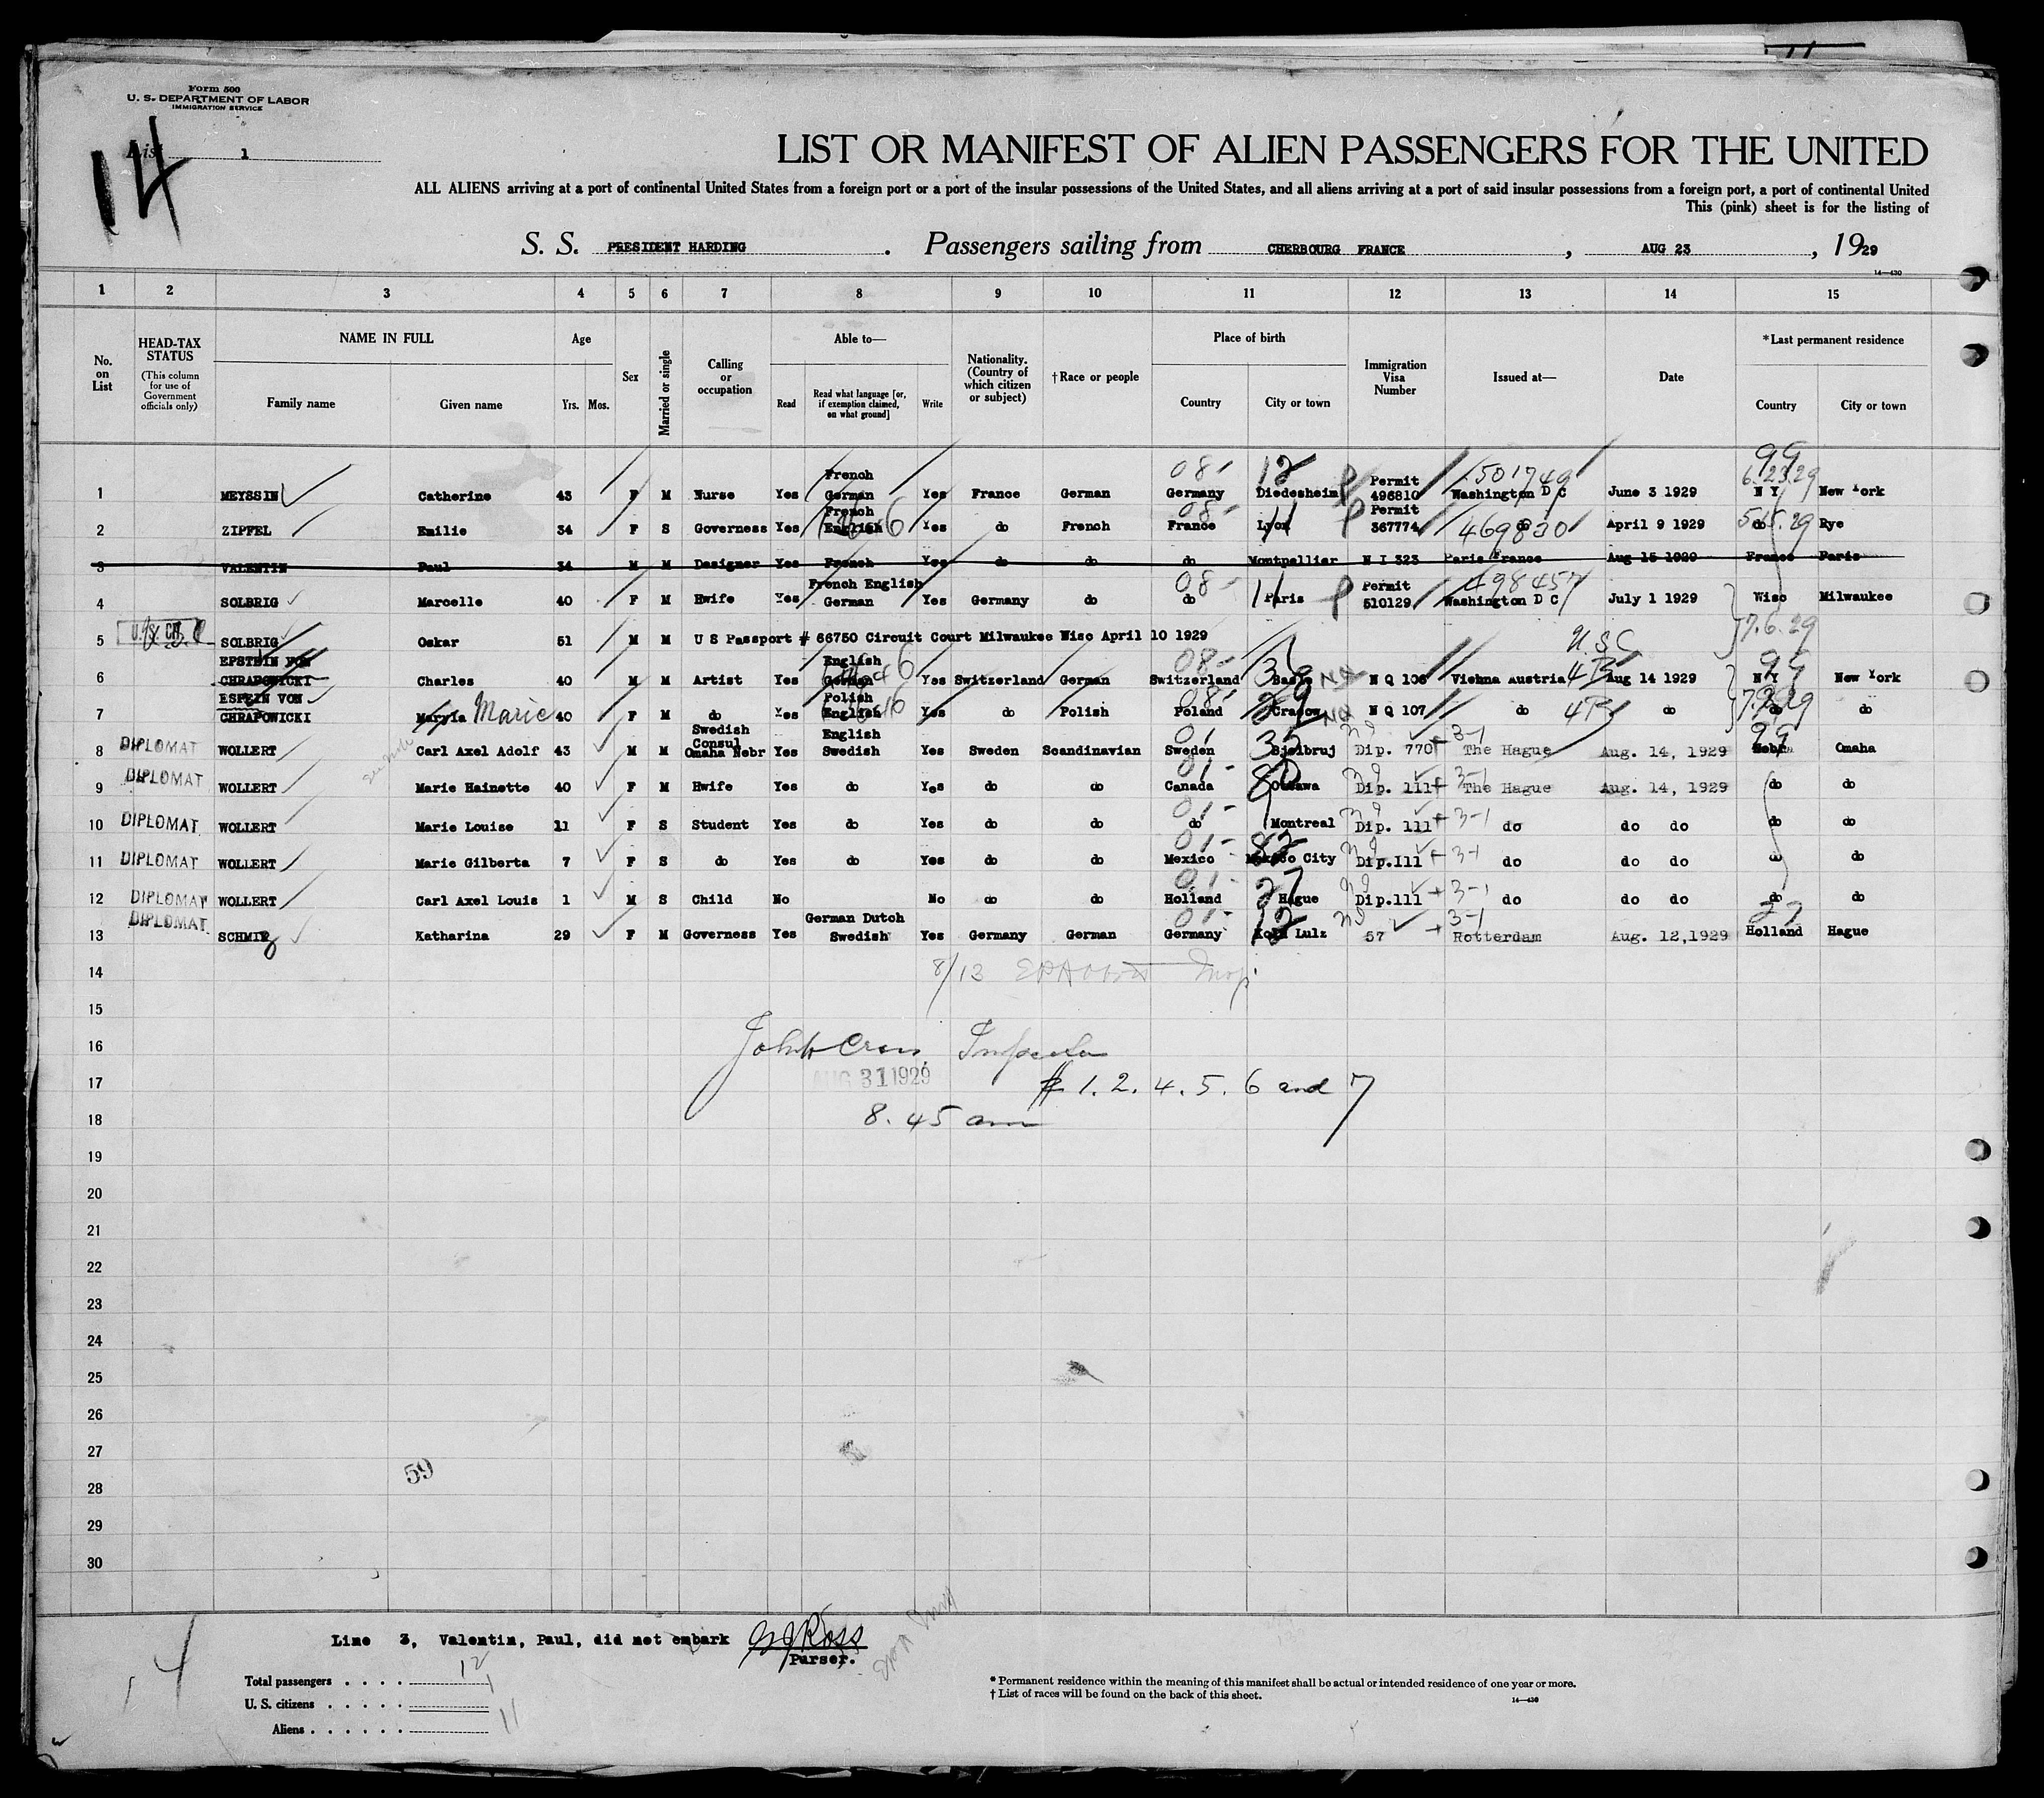 Form 500
U. S. DEPARTMENT OF LABOR
IMMIGRATION SERVICE
List 1
14
LIST OR MANIFEST OF ALIEN PASSENGERS FOR THE UNITED
ALL ALIENS arriving at a port of continental United States from a foreign port or a port of the insular possessions of the United States, and all aliens arriving at a port of said insular possessions from a foreign port, a port of continental United
This (pink) sheet is for the listing of
S. S. PRESIDENT HARDING . Passengers sailing from CHERBOURG FRANCE , AUG 23 , 1929
14—430
1 2 3 4 5 6 7 8 9 10 11 12 13 14 15
No. on List
HEAD-TAX STATUS (This column for use of Government officials only)
NAME IN FULL
Family name Given name
Age
Yrs. Mos.
Sex
Married or single
Calling or occupation
Able to—
Read Read what language [or, if exemption claimed, on what ground] Write
Nationality. (Country of which citizen or subject)
† Race or people
Place of birth
Country City or town
Immigration Visa Number
Issued at—
Date
* Last permanent residence
Country City or town
1 MEYSSIN Catherine 43 F M Nurse Yes French German Yes France German 08- Germany 12 Diedesheim Permit 496810 501749 Washington D C June 3 1929 99 6.23.29 N Y New York
2 ZIPFEL Emilie 34 F S Governess Yes French English Yes do French 08- France 11 Lyon Permit 367774 469830 do April 9 1929 5.15.29 do Rye
3 VALENTIN Paul 34 M M Designer Yes French Yes do do do Montpellier N I 323 Paris France Aug 15 1929 France Paris
4 SOLBRIG Marcelle 40 F M Hwife Yes French English German Yes Germany do 08- do 11 Paris Permit 510129 498457 Washington D C July 1 1929 Wisc Milwaukee
5 U.S. CIT. SOLBRIG Oskar 51 M M U S Passport # 66750 Circuit Court Milwaukee Wisc April 10 1929 U.S.C 7.6.29
6 EPSTEIN VON CHRAPOWICKI Charles 40 M M Artist Yes English German Yes Switzerland German 08- Switzerland Basle NQ N Q 106 Vienna Austria Aug 14 1929 99 N Y New York
7 ESPEIN VON CHRAPOWICKI Maryla Marie 40 F M do Yes Polish English Yes do Polish 08- Poland 29 Cracow NQ N Q 107 do do do do
8 DIPLOMAT WOLLERT Carl Axel Adolf 43 M M Swedish Consul Omaha Nebr Yes English Swedish Yes Sweden Scandinavian 01- Sweden Bjelbruj Dip. 770 3-1 The Hague Aug. 14, 1929 99 Nebr Omaha
9 DIPLOMAT WOLLERT Marie Hainette 40 F M Hwife Yes do Yes do do 01- Canada 80 Ottawa Dip. 111 3-1 The Hague Aug. 14, 1929 do do
10 DIPLOMAT WOLLERT Marie Louise 11 F S Student Yes do Yes do do 01- do Montreal Dip. 111 3-1 do do do do do
11 DIPLOMAT WOLLERT Marie Gilberta 7 F S do Yes do Yes do do 01- Mexico 82 Mexico City Dip.Ill 3-1 do do do do do
12 DIPLOMAT WOLLERT Carl Axel Louis 1 M S Child No No do do 01- Holland 27 Hague Dip.111 3-1 do do do do do
13 DIPLOMAT SCHMID Katharina 29 F M Governess Yes German Dutch Swedish Yes Germany German 01- Germany 12 Lulz 57 3-1 Rotterdam Aug. 12,1929 27 Holland Hague
14 8/13
15
16 John
17 AUG 31 1929 # 1. 2. 4. 5. 6 and 7
18 8.45 am
19
20
21
22
23
24
25
26
27
28 59
29
30
Line 3, Valentin, Paul, did not embark Ross
Purser.
14
Total passengers . . . . 12
U. S. citizens . . . . . 1
Aliens . . . . . . 11
* Permanent residence within the meaning of this manifest shall be actual or intended residence of one year or more.
† List of races will be found on the back of this sheet.
14—430